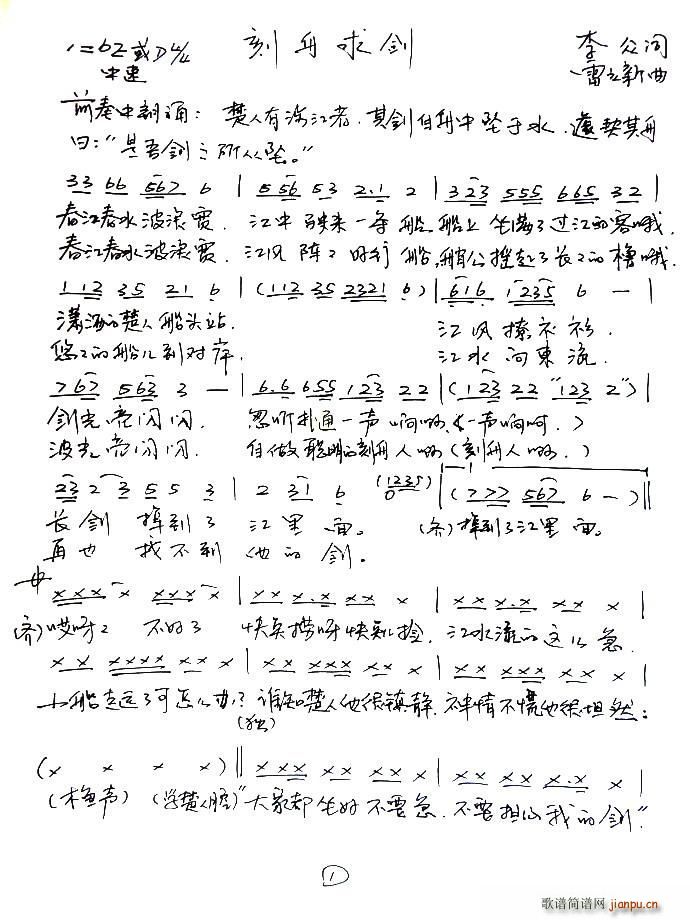 1=bE或D 4/4 刻舟求剑 李众词
中速 雷立新曲
前奏中朗诵：楚人有涉江者，其剑自舟中坠于水，遽契其舟
曰："是吾剑之所从坠。"
33 66 567 6 | 5 56 53 2.1 2 | 323 555 665 32 |
春江春水波浪宽，江中驶来一条船，船上坐满了过江的客哦，
春江春水波浪宽，江风阵阵好行船，艄公摇起了长长的橹哦，
112 35 21 6 | (112 35 2321 6) | 616 1235 6 — |
潇洒的楚人船头站， 江风撩衣衫，
悠悠的船儿到对岸， 江水向东流，
767 563 3 — | 6.6 655 123 22 | (123 22 "123 2") |
剑光亮闪闪， 忽听扑通一声响啊（一声响啊，）
波光亮闪闪， 自做聪明的刻舟人啊（刻舟人啊，）
23 2 3 5 5 3 | 2 31 6 (1235) 0 | (777 567 6 —) ||
长剑 掉到了 江里面。 (齐)掉到了江里面。
再也 找不到 他的剑。
xxx x xxx x | xx x.x xx x | xx x.x xx x |
(齐)哎呀呀 不好了 快点捞呀快点捡，江水流的这么急，
xx xxxx xx x | xx xxx xx x | xx xxx xx x |
小船走远了可怎么办？谁知楚人他很镇静，神情不慌他很坦然：
(独)
(x x x x) || xx xxx xx xx x | xx xx xx x.x x |
(木鱼声) (学楚人腔)"大家都坐好不要急，不要担心我的剑."
1
歌谱简谱网
jianpu.cn